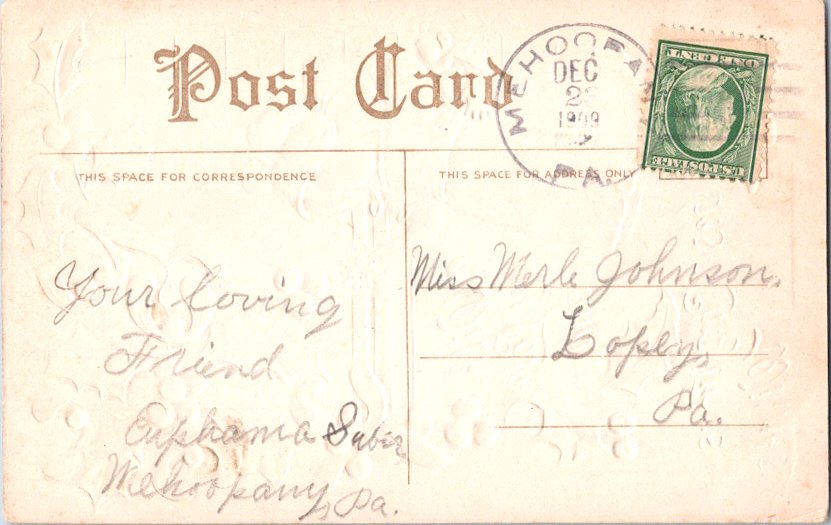 Post Card
MEHOOPA
DEC
1909
PA.
U.S. POSTAGE
ONE CENT
THIS SPACE FOR CORRESPONDENCE
THIS SPACE FOR ADDRESS ONLY
Your loving
Friend
Euphama
Mehoopany, Pa.
Miss Merle Johnson,
Lopez,
Pa.